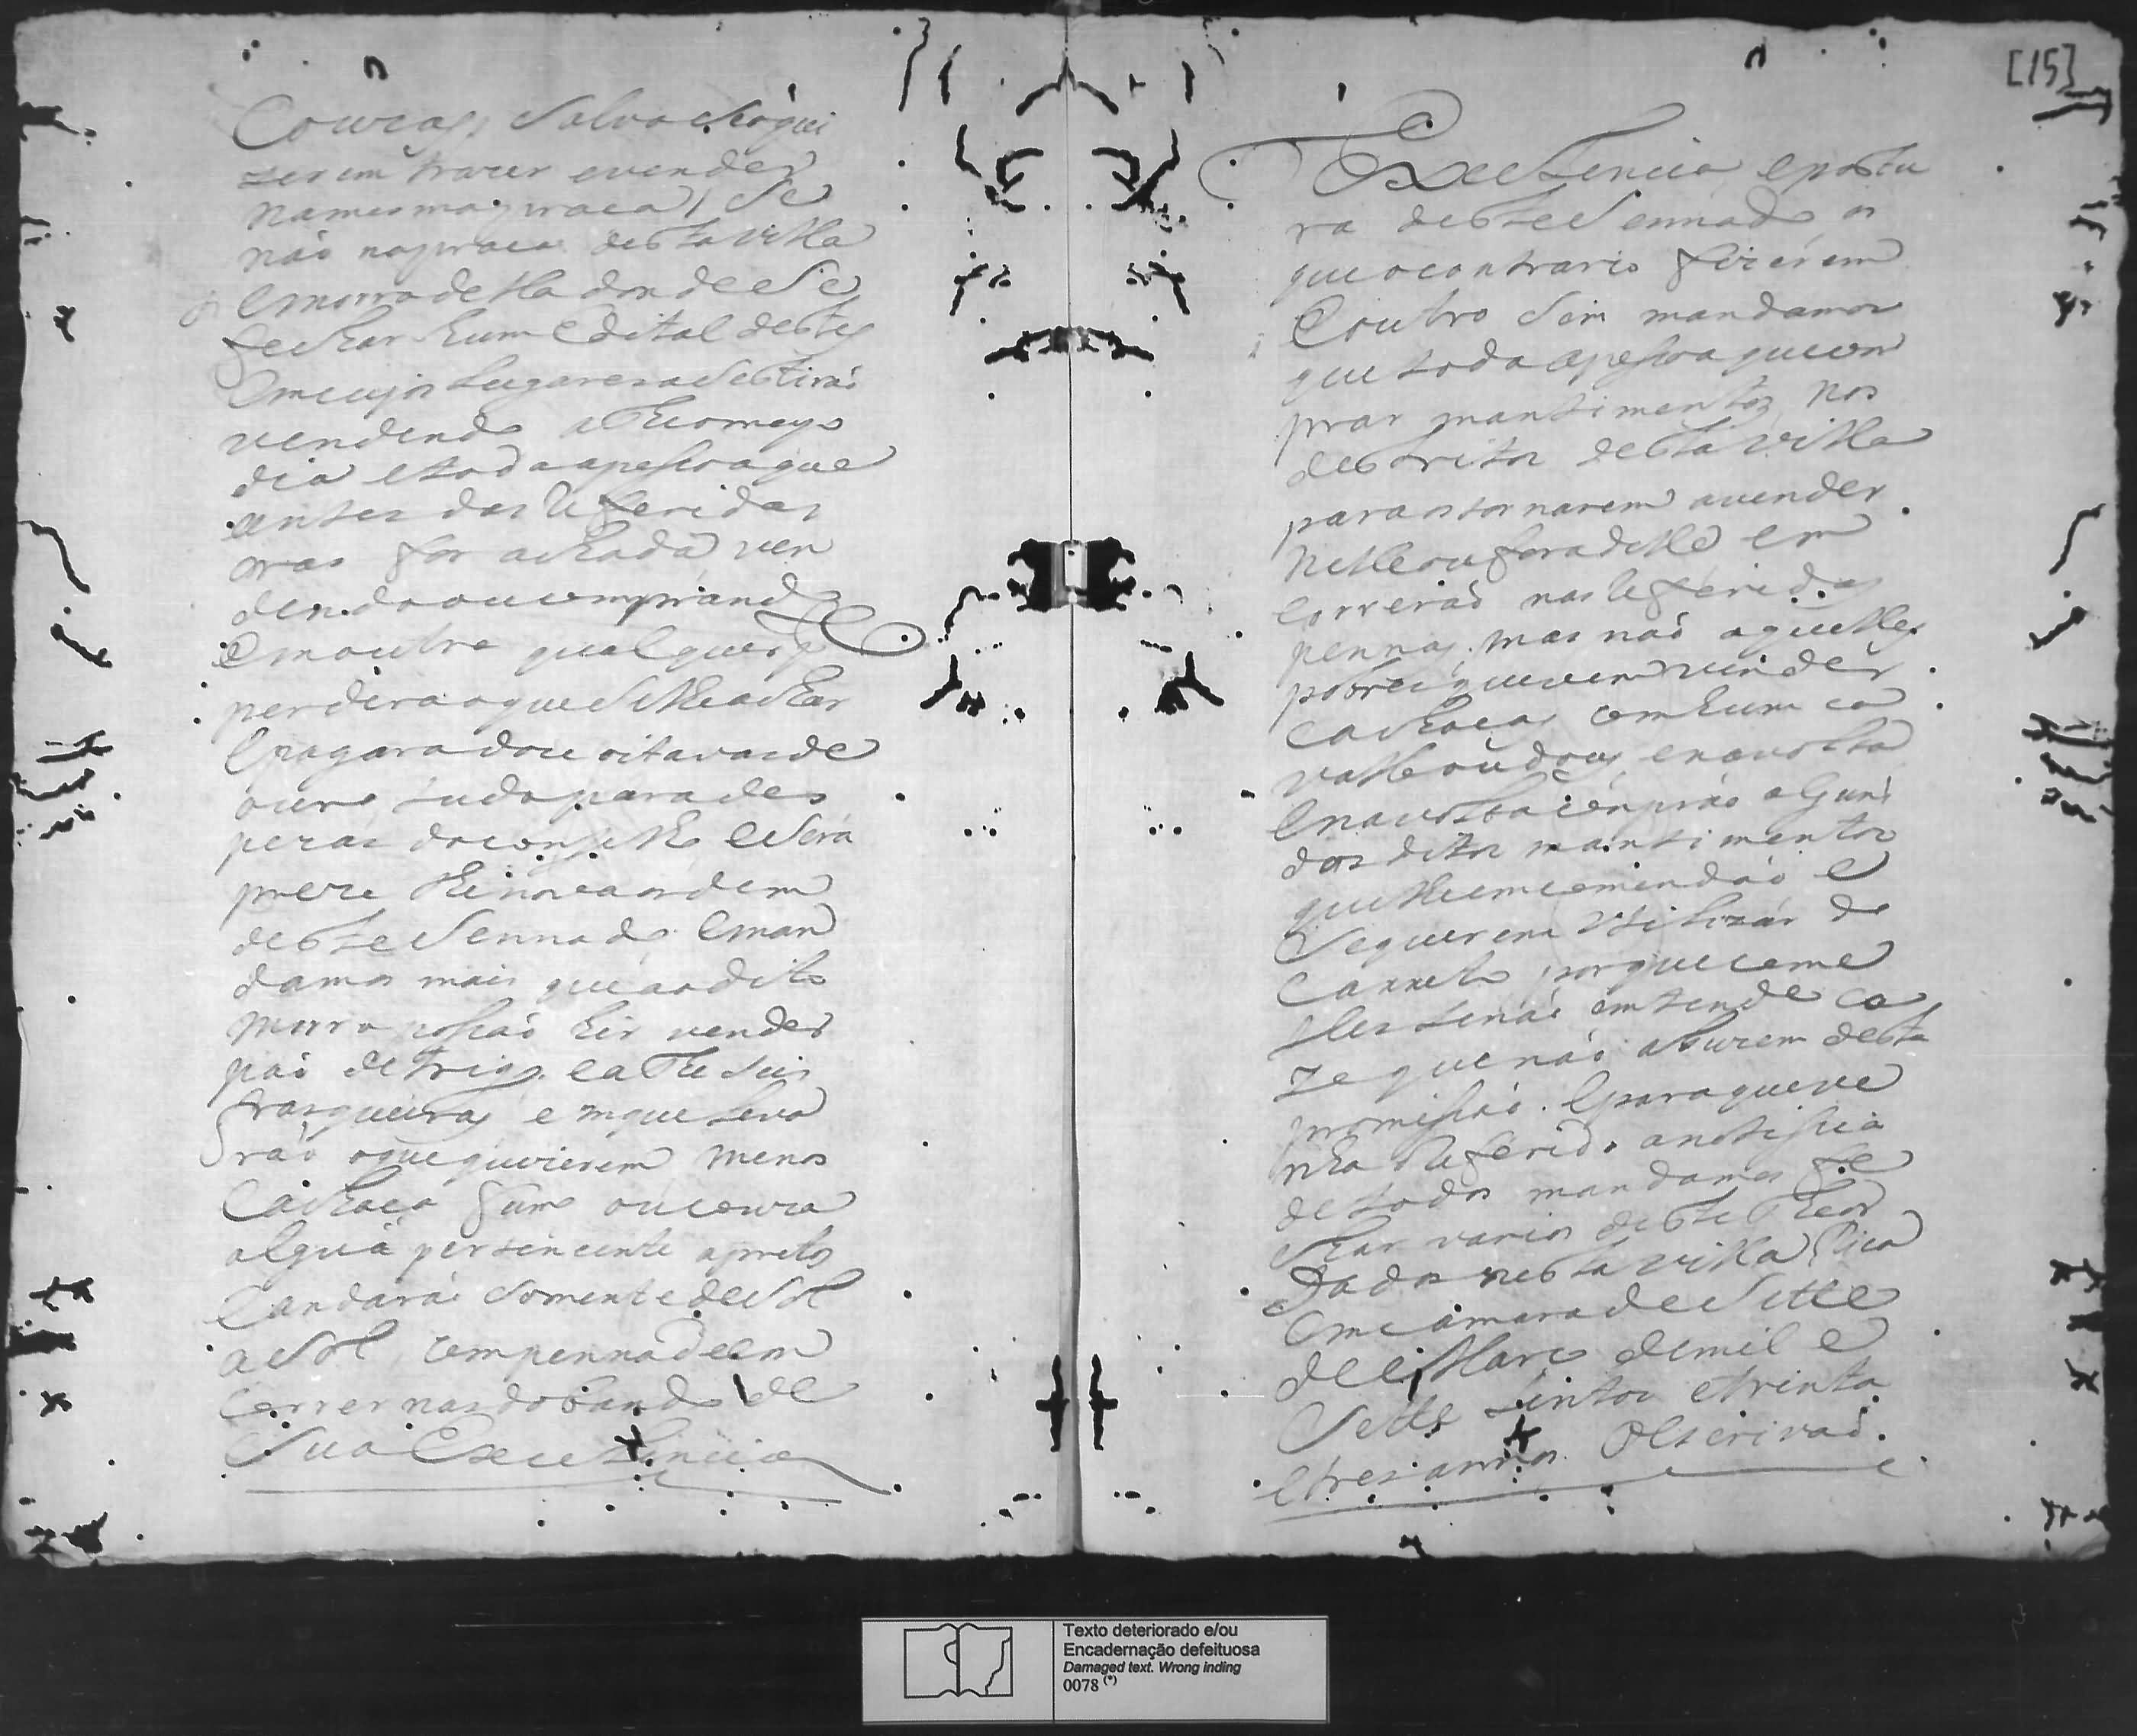 Couzas, Salvo se o qui
zerem trazer evender
namesma praca, Se
não na praca desta villa
e morro della donde Se
fechar hum Edital destes
Em cujos Lugares aSestirão
vendendo athe o meyo
dia e toda apessoa que
antes das Referidas
oras for achada ven
dendo ou comprando
Em outra qualquer p.te
perdera o que Se lhe achar
E pagara doze oitavas de
ouro tudo para des
pezas do conselho e Será
preze a ordem
deste Sennado. E man
damos mais que ao dito
morro possão hir vender
pão de trigo e athe seis
frasqueiras em que Leva
rão o que quizerem menos
Cachaca fumo ou couza
algúa pertencente a pretos
E andarão somente de Sol
a Sol, com penna de em
correr nas do bando de
Sua Excellencia
[15]
Excellencia, e postu
ra deste Sennado os
que o contrario fizerem
E outro Sim mandamos
que toda a pessoa que com
prar mantimentos nos
destritos desta villa
para os tornarem a vender
nelle ou fora delle em
correrão nas Referidas
pennas, mas não aquelles
pobres que vem vender
cachacas com hum ca
vallo ou dous, e na volta
E na volta conprão alguns
dos ditos mantimentos
que lhe emcomendão e
Se querem Utilizar do
Carreto porque com e
lles se não emtende co
ze que não abuzem desta
promissão. E para que ve
nha o Referido a notissia
de todos mandamos fe
char varios deste theor
Dados nesta villa Rica
Em camara de Sette
de Marco de mil e
Sette Sentos e trinta
e tres annos. O Escrivão.
Texto deteriorado e/ou
Encadernação defeituosa
Damaged text. Wrong inding
0078 (*)